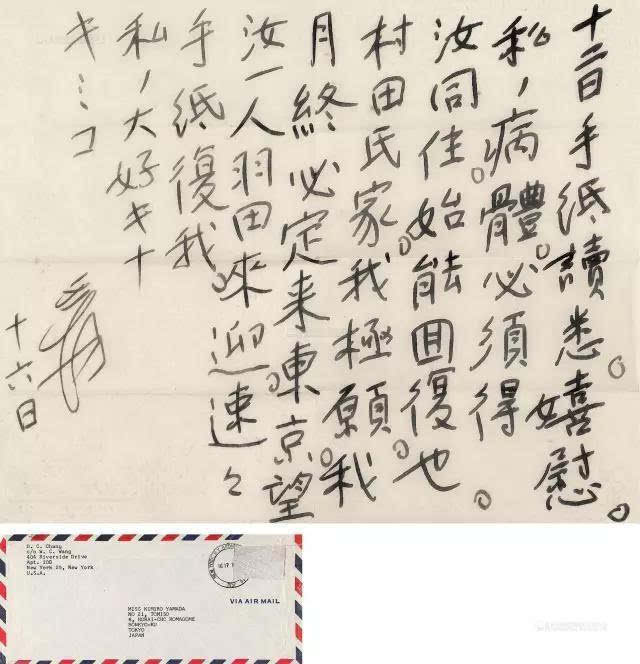 十二日手紙讀悉。嬉慰。
私ノ病體。必須得
汝同住。始能囬復也。
村田氏家。我極願。我
月終必定来東京。望
汝一人羽田來迎。速々
手紙復我。
私ノ大好キナ
キミコ
十六日
D. C. Chang
c/o W. C. Wang
404 Riverside Drive
Apt. 10B
New York 25, New York
U.S.A.
VIA AIR MAIL
MISS KIMIKO YAMADA
NO 21, TOMISO
4, HORAI-CHO KOMAGOME
BONKYO-KU
TOKYO
JAPAN